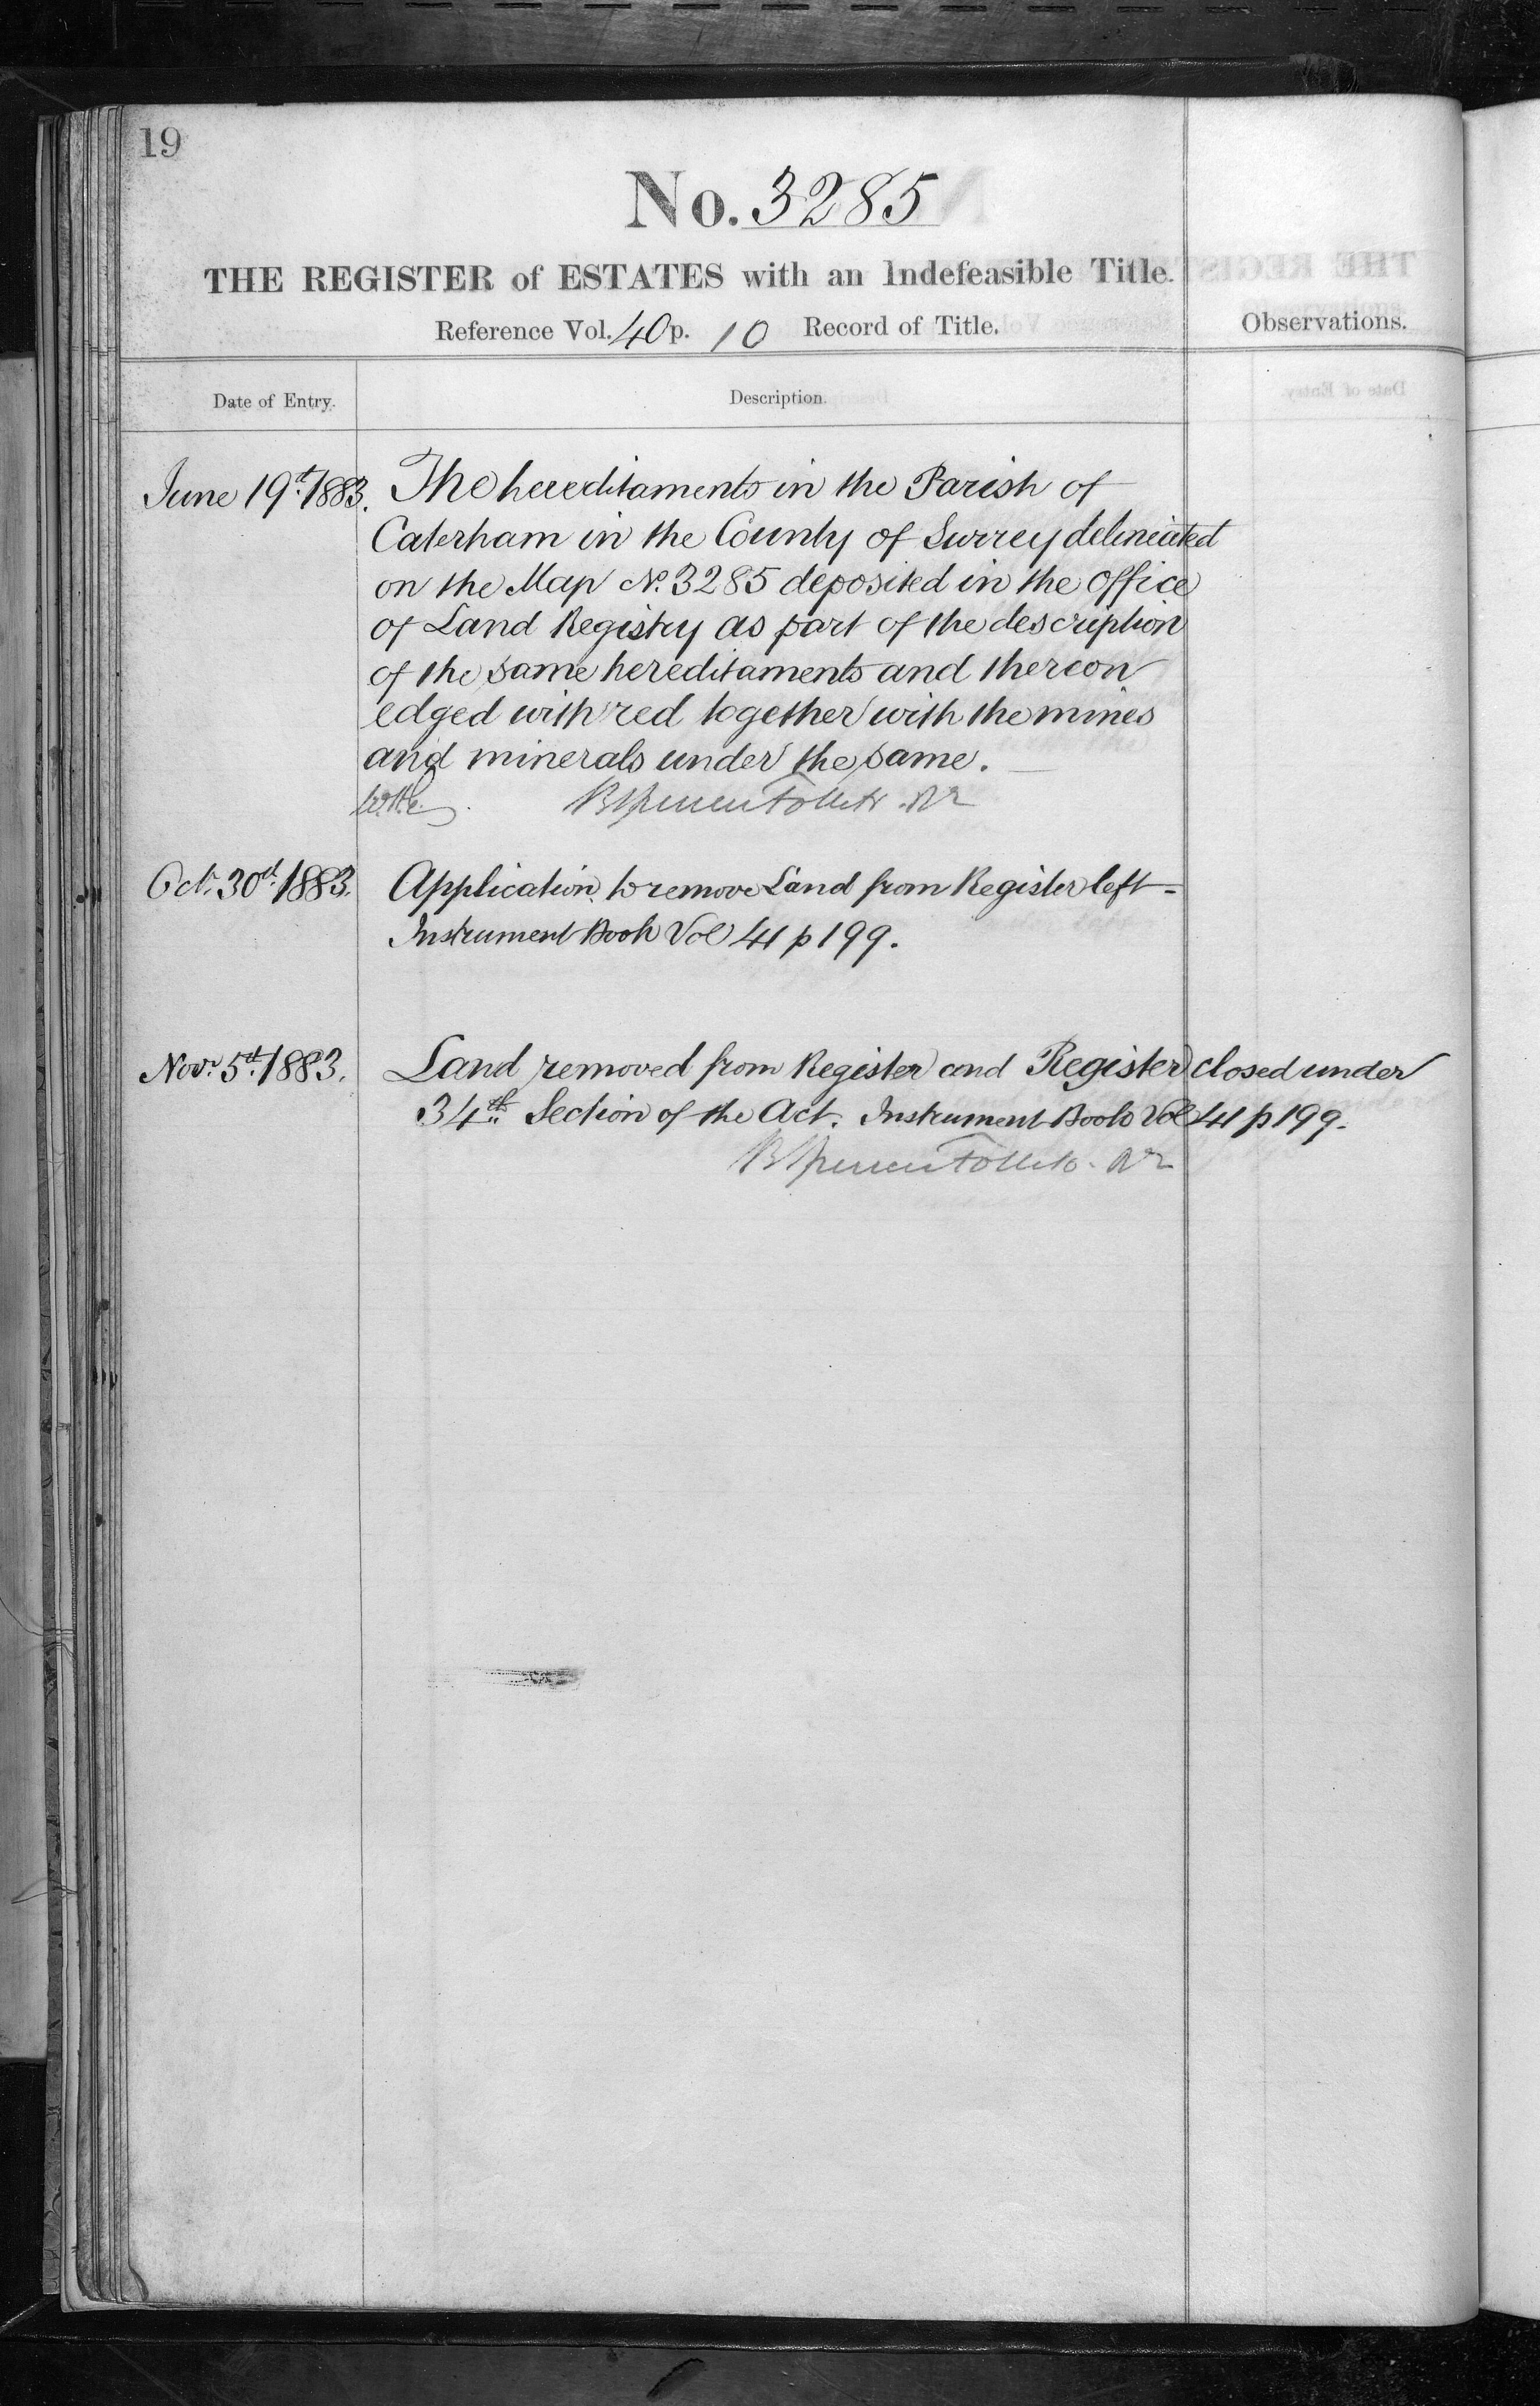 19
No. 3285
THE REGISTER of ESTATES with an Indefeasible Title.
Reference Vol. 40 p. 10 Record of Title.
Observations.
Date of Entry.
Description.
June 19th 1883. The hereditaments in the Parish of
Caterham in the County of Surrey delineated
on the Map No. 3285 deposited in the Office
of Land Registry as part of the description
of the same hereditaments and thereon
edged with red together with the mines
and minerals under the same.
Octr. 30th 1883. Application to remove Land from Register left -
Instrument Book Vol 41 p 199.
Novr. 5th 1883. Land removed from Register and Register closed under
34th Section of the Act. Instrument Book Vol 41 p 199.